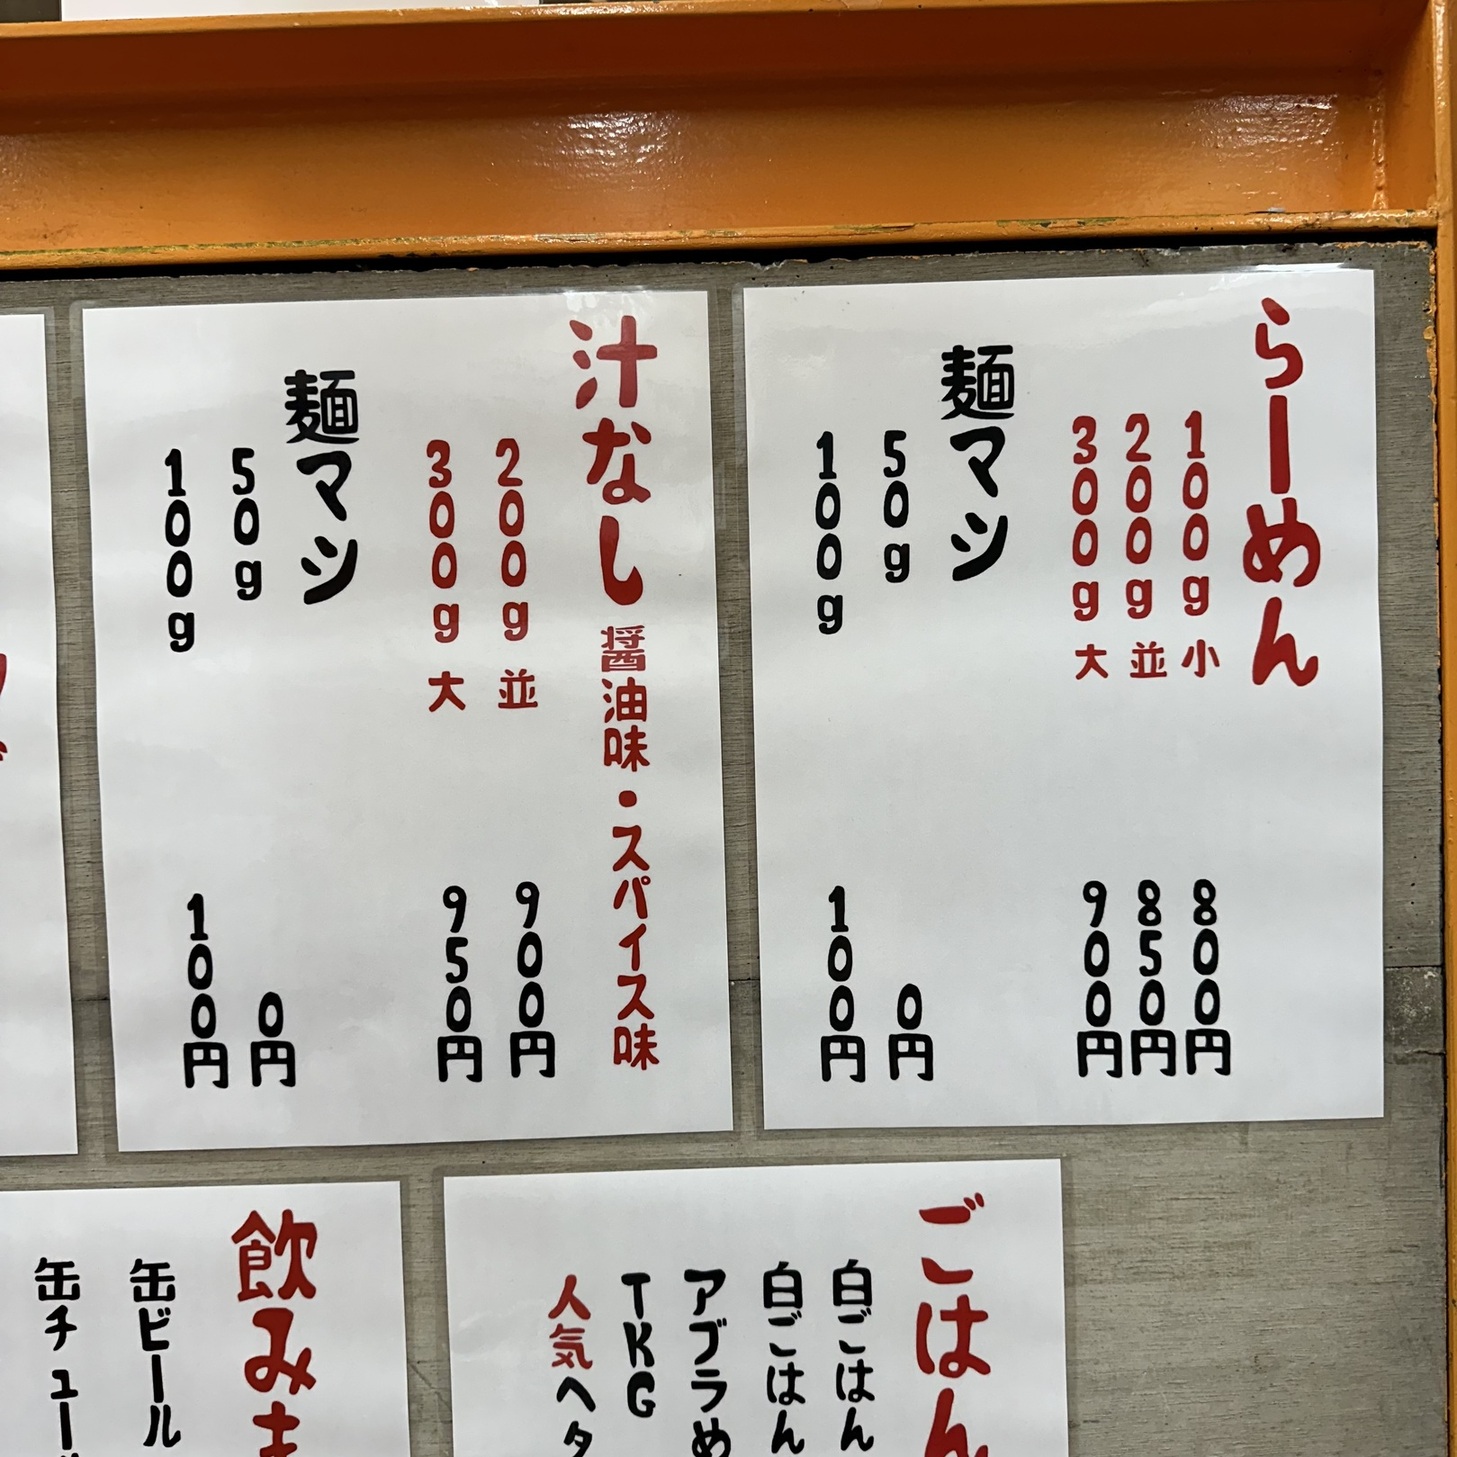 らーめん
100g 小 800円
200g 並 850円
300g 大 900円
麺マシ
50g 0円
100g 100円
汁なし 醤油味・スパイス味
200g 並 900円
300g 大 950円
麺マシ
50g 0円
100g 100円
ごはん
白ごはん
白ごはん
アブラめ
TKG
人気ヘタ
飲みま
缶ビール
缶チュー